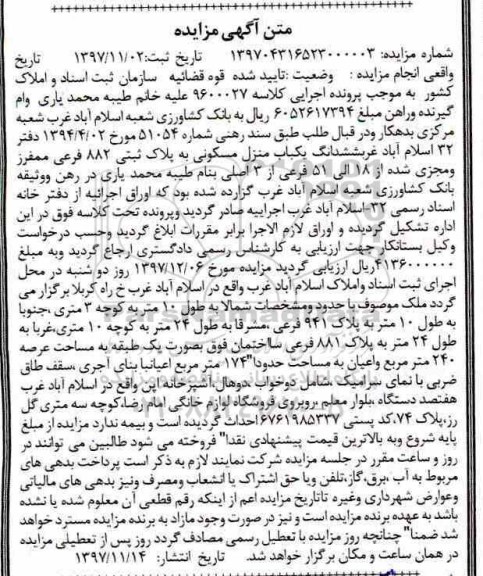 متن آگهی مزایده
شماره مزایده: ۱۳۹۷۰۴۳۱۶۵۲۳۰۰۰۰۰۳ تاریخ ثبت:۱۳۹۷/۱۱/۰۲ تاریخ
واقعی انجام مزایده : وضعیت :تایید شده قوه قضائیه سازمان ثبت اسناد و املاک
کشور به موجب پرونده اجرایی کلاسه ۹۶۰۰۰۲۷ علیه خانم طیبه محمد یاری وام
گیرنده وراهن مبلغ ۶۰۵۲۶۱۷۳۹۴ ریال به بانک کشاورزی شعبه اسلام آباد غرب شعبه
مرکزی بدهکار ودر قبال طلب طبق سند رهنی شماره ۵۱۰۵۴ مورخ ۱۳۹۴/۴/۰۲ دفتر
۳۲ اسلام آباد غربششدانگ یکباب منزل مسکونی به پلاک ثبتی ۸۸۲ فرعی ممفرز
ومجزی شده از ۱۸ الی ۵۱ فرعی از ۳ اصلی بنام طیبه محمد یاری در رهن ووثیقه
بانک کشاورزی شعبه اسلام آباد غرب گزارده شده بود که اوراق اجرائیه از دفتر خانه
اسناد رسمی ۳۲ اسلام آباد غرب اجراییه صادر گردید وپرونده تحت کلاسه فوق در این
اداره تشکیل گردیده و اوراق لازم الاجرا برابر مقررات ابلاغ گردید وحسب درخواست
وکیل بستانکار جهت ارزیابی به کارشناس رسمی دادگستری ارجاع گردید وبه مبلغ
۴۱۳۶۰۰۰۰۰۰ریال ارزیابی گردید مزایده مورخ ۱۳۹۷/۱۲/۰۶ روز دو شنبه در محل
اجرای ثبت اسناد واملاک اسلام آباد غرب واقع در اسلام آباد غرب خ راه کربلا برگزار می
گردد ملک موصوف با حدود ومشخصات شمالا به طول ۱۰ متر به کوچه ۳ متری ،جنوبا
به طول ۱۰ متر به پلاک ۹۴۱ فرعی ،مشرقا به طول ۲۴ متر به کوچه ۱۰ متری،غربا به
طول ۲۴ متر به پلاک ۸۸۱ فرعی ساختمان فوق بصورت یک طبقه به مساحت عرصه
۲۴۰ متر مربع واعیان به مساحت حدودا"۱۷۴ متر مربع اعیانیا بنای آجری ،سقف طاق
ضربی با نمای سرامیک ،شامل دوخواب ،دوهال،آشپزخانه این واقع در اسلام آباد غرب
هفتصد دستگاه ،بلوار معلم ،روبروی فروشگاه لوازم خانگی امام رضا،کوچه سه متری گل
رز،پلاک ۷۴،کد پستی ۶۷۶۱۹۸۵۳۳۷احداث گردیده است و بیمه ندارد مزایده از مبلغ
پایه شروع وبه بالاترین قیمت پیشنهادی نقدا" فروخته می شود طالبین می توانند در
روز و ساعت مقرر در جلسه مزایده شرکت نمایند لازم به ذکر است پرداخت بدهی های
مربوط به آب ،برق،گاز،تلفن ویا حق اشتراک یا انشعاب ومصرف ونیز بدهی های مالیاتی
وعوارض شهرداری وغیره تاتاریخ مزایده اعم از اینکه رقم قطعی آن معلوم شده یا نشده
باشد به عهده برنده مزایده است و نیز در صورت وجود مازاد به برنده مزایده مسترد خواهد
شد ضمنا" چنانچه روز مزایده با تعطیل رسمی مصادف گردد روز پس از تعطیلی مزایده
در همان ساعت و مکان برگزار خواهد شد. تاریخ انتشار: ۱۳۹۷/۱۱/۱۴